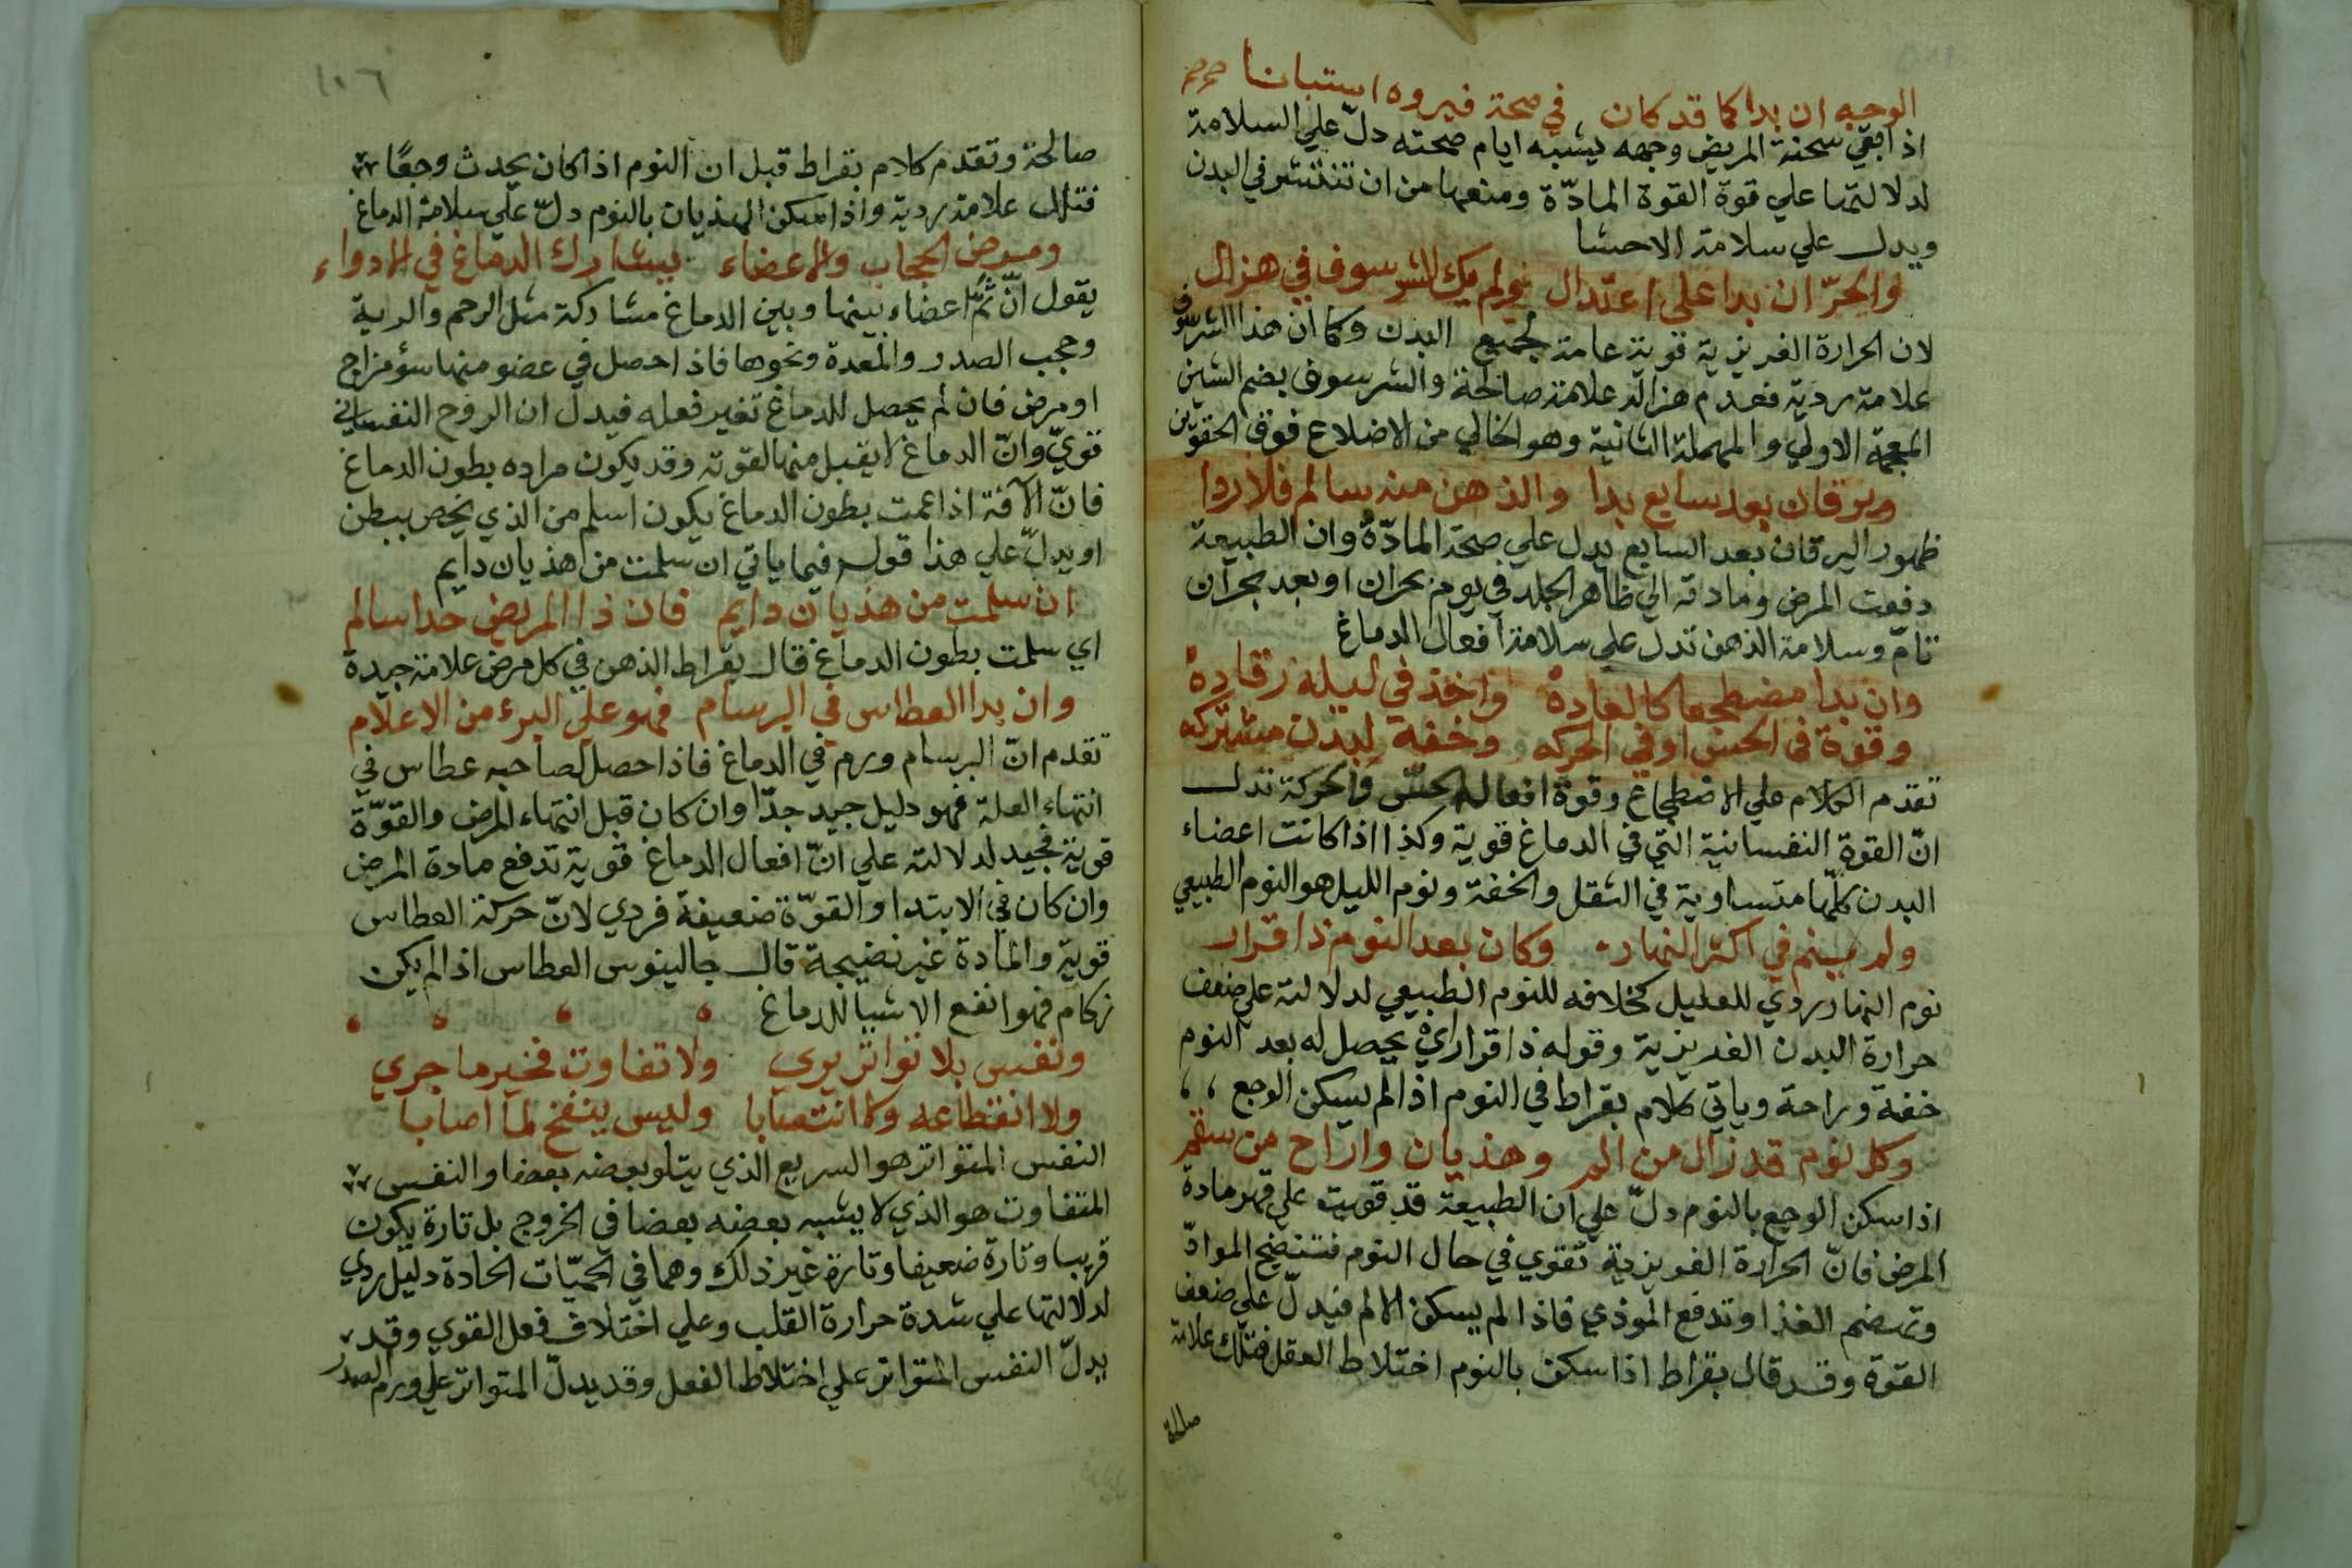 الوجه ان بدا كما قد كان في صحة فبروه استبانا
اذا بقي سحنة المريض وجهه يشبه ايام صحته دلّ علي السلامة
لدلالتها علي قوة القوة المادّة ومنعها من ان تنتشر في البدن
ويدل علي سلامة الاحشا
والحرّ ان بدا علي اعتدال ولم يك الشرسوف في هزال
لان الحرارة الغريزية قوية عامة لجميع البدن وكما ان هذا الشرسوف
علامة ردية فعدم هزاله علامة صالحة والشرسوف بضم الشين
المعجمة الاولي والمهملة الثانية وهو الخالي من الاضلاع فوق الحقوين
ويرقان بعد سابع بدا والذهن منه سالم فلا ردا
ظهور اليرقان بعد السابع يدل علي صحة المادّة وان الطبيعة
دفعت المرض ومادته الي ظاهر الجلد في يوم بحران او بعد بحران
تامّ وسلامة الذهن تدل علي سلامة افعال الدماغ
وان بدا مضطجعا كالعادة واخذ في ليله رقاده
وقوة في الحس او في الحركه وخفة لبدن مشتركه
تقدم الكلام علي الاضطجاع وقوة افعال الحسّ والحركة تدل
انّ القوة النفسانية التي في الدماغ قوية وكذا اذا كانت اعضاء
البدن كلّها متساوية في الثقل والخفة ونوم الليل هو النوم الطبيعي
ولم ينم في اكثر النهار وكان بعد النوم ذا قرار
نوم النهار ردي للعليل كخلافه للنوم الطبيعي لدلالته علي ضعف
حرارة البدن الغريزية وقوله ذا قرار اي يحصل له بعد النوم
خفة وراحة وياتي كلام بقراط في النوم اذا لم يسكن الوجع
وكل نوم قد زال من الم وهذيان واراح من سقم
اذا سكن الوجع بالنوم دلّ علي ان الطبيعة قد قويت علي قهر مادة
المرض فانّ الحرارة الغريزية تقوي في حال النوم فتنضج الموادّ
وتهضم الغذا وتدفع الموذي فاذا لم يسكن الالم فيدلّ علي ضعف
القوة وقد قال بقراط اذا سكن بالنوم اختلاط العقل فتلك علامة
صالحة
١٠٦
صالحة وتقدم كلام بقراط قبل ان النوم اذا كان يحدث وجعًا
فتلك علامة ردية واذا سكن الهذيان بالنوم دلّ علي سلامة الدماغ
ومرض الحجاب والاعضاء يشارك الدماغ في الادواء
يقول انّ ثمّ اعضاء بينها وبين الدماغ مشاركة مثل الرحم والرية
وحجب الصدر والمعدة ونحوها فاذا حصل في عضو منها سؤ مزاج
او مرض فان لم يحصل للدماغ تغير فعله فيدل ان الروح النفساني
قويّ وانّ الدماغ لا يقبل منها لقوته وقد يكون مراده بطون الدماغ
فانّ الآفة اذا عمت بطون الدماغ يكون اسلم من الذي يخص ببطن
او يدلّ علي هذا قوله فيما ياتي ان سلمت من هذيان دايم
ان سلمت من هذيان دايم فان ذا المريض جدا سالم
اي سلمت بطون الدماغ قال بقراط الذهن في كل مرض علامة جيدة
وان بدا العطاس في البرسام فهو علي البرء من الاعلام
تقدم انّ البرسام ورم في الدماغ فاذا حصل لصاحبه عطاس في
انتهاء العلة فهو دليل جيد جدّا وان كان قبل انتهاء المرض والقوّة
قوية فجيد لدلالته علي انّ افعال الدماغ قوية تدفع مادة المرض
وان كان في الابتدا والقوّة ضعيفة فردي لانّ حركة العطاس
قوية والمادة غير نضيجة قال جالينوس العطاس اذا لم يكن
زكام فهو انفع الاشيا للدماغ
ونفس بلا تواتر يري ولا تفاوت فخير ما جري
ولا انقطاعه ولا انتصابا وليس ينفخ لما اصابا
النفس المتواتر هو السريع الذي يتلو بعضه بعضا والنفس
المتفاوت هو الذي لا يشبه بعضه بعضا في الخروج بل تارة يكون
قريبا وتارة ضعيفا وتارة غير ذلك وهما في الحميّات الحادة دليل ردي
لدلالتها علي شدة حرارة القلب وعلي اختلاف فعل القوي وقد
يدلّ النفس المتواتر علي اختلاط الفعل وقد يدلّ المتواتر علي ورم الصدر